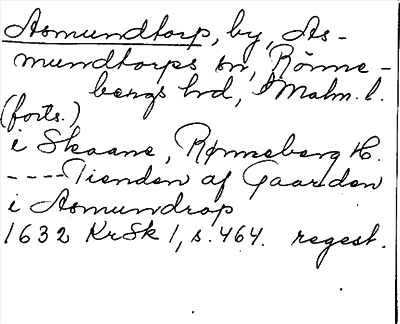 Asmundtorp, by, As-
mundtorps sn, Rönne-
bergs hd, Malm. l.
(forts.)
i Skaane, Rønneberg H.
----Tienden af Gaarden
i Asmundrop
1632 KrSk 1, s. 464. regest.